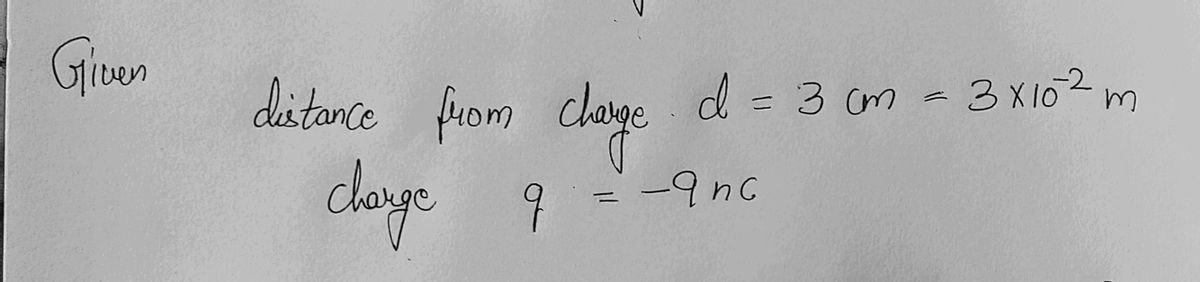 Given
distance from charge d = 3 cm = 3 x 10⁻² m
charge q = -9 nC